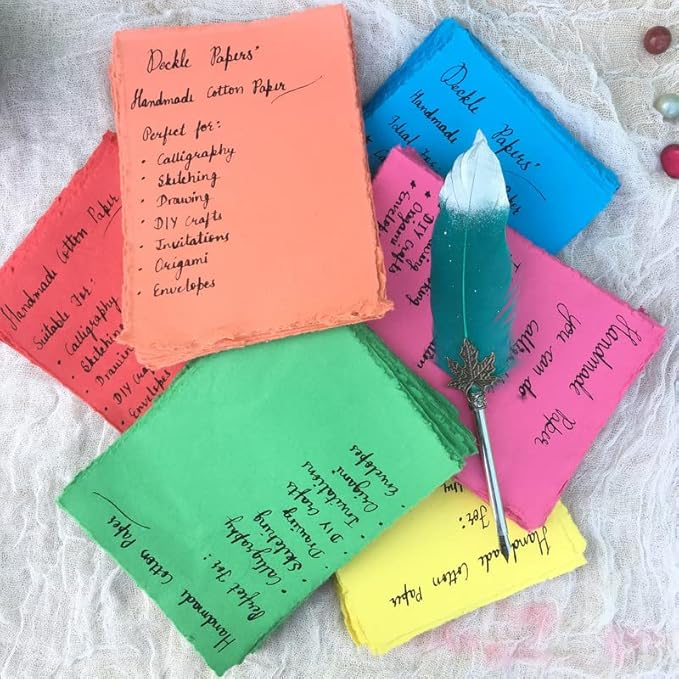 Deckle Papers'
Handmade Cotton Paper
Perfect for:
• Calligraphy
• Sketching
• Drawing
• DIY Crafts
• Invitations
• Origami
• Envelopes
Deckle Papers'
Handmade
Ideal
Handmade Cotton Paper
Suitable For:
• Calligraphy
• Sketching
• Drawing
• DIY Crafts
• Envelopes
Handmade Paper
you can do
DIY Crafts
Origami
Handmade Cotton Papers
Perfect For:
• Calligraphy
• Sketching
• Drawing
• DIY Crafts
• Invitations
• Origami
• Envelopes
Handmade Cotton Paper
For: